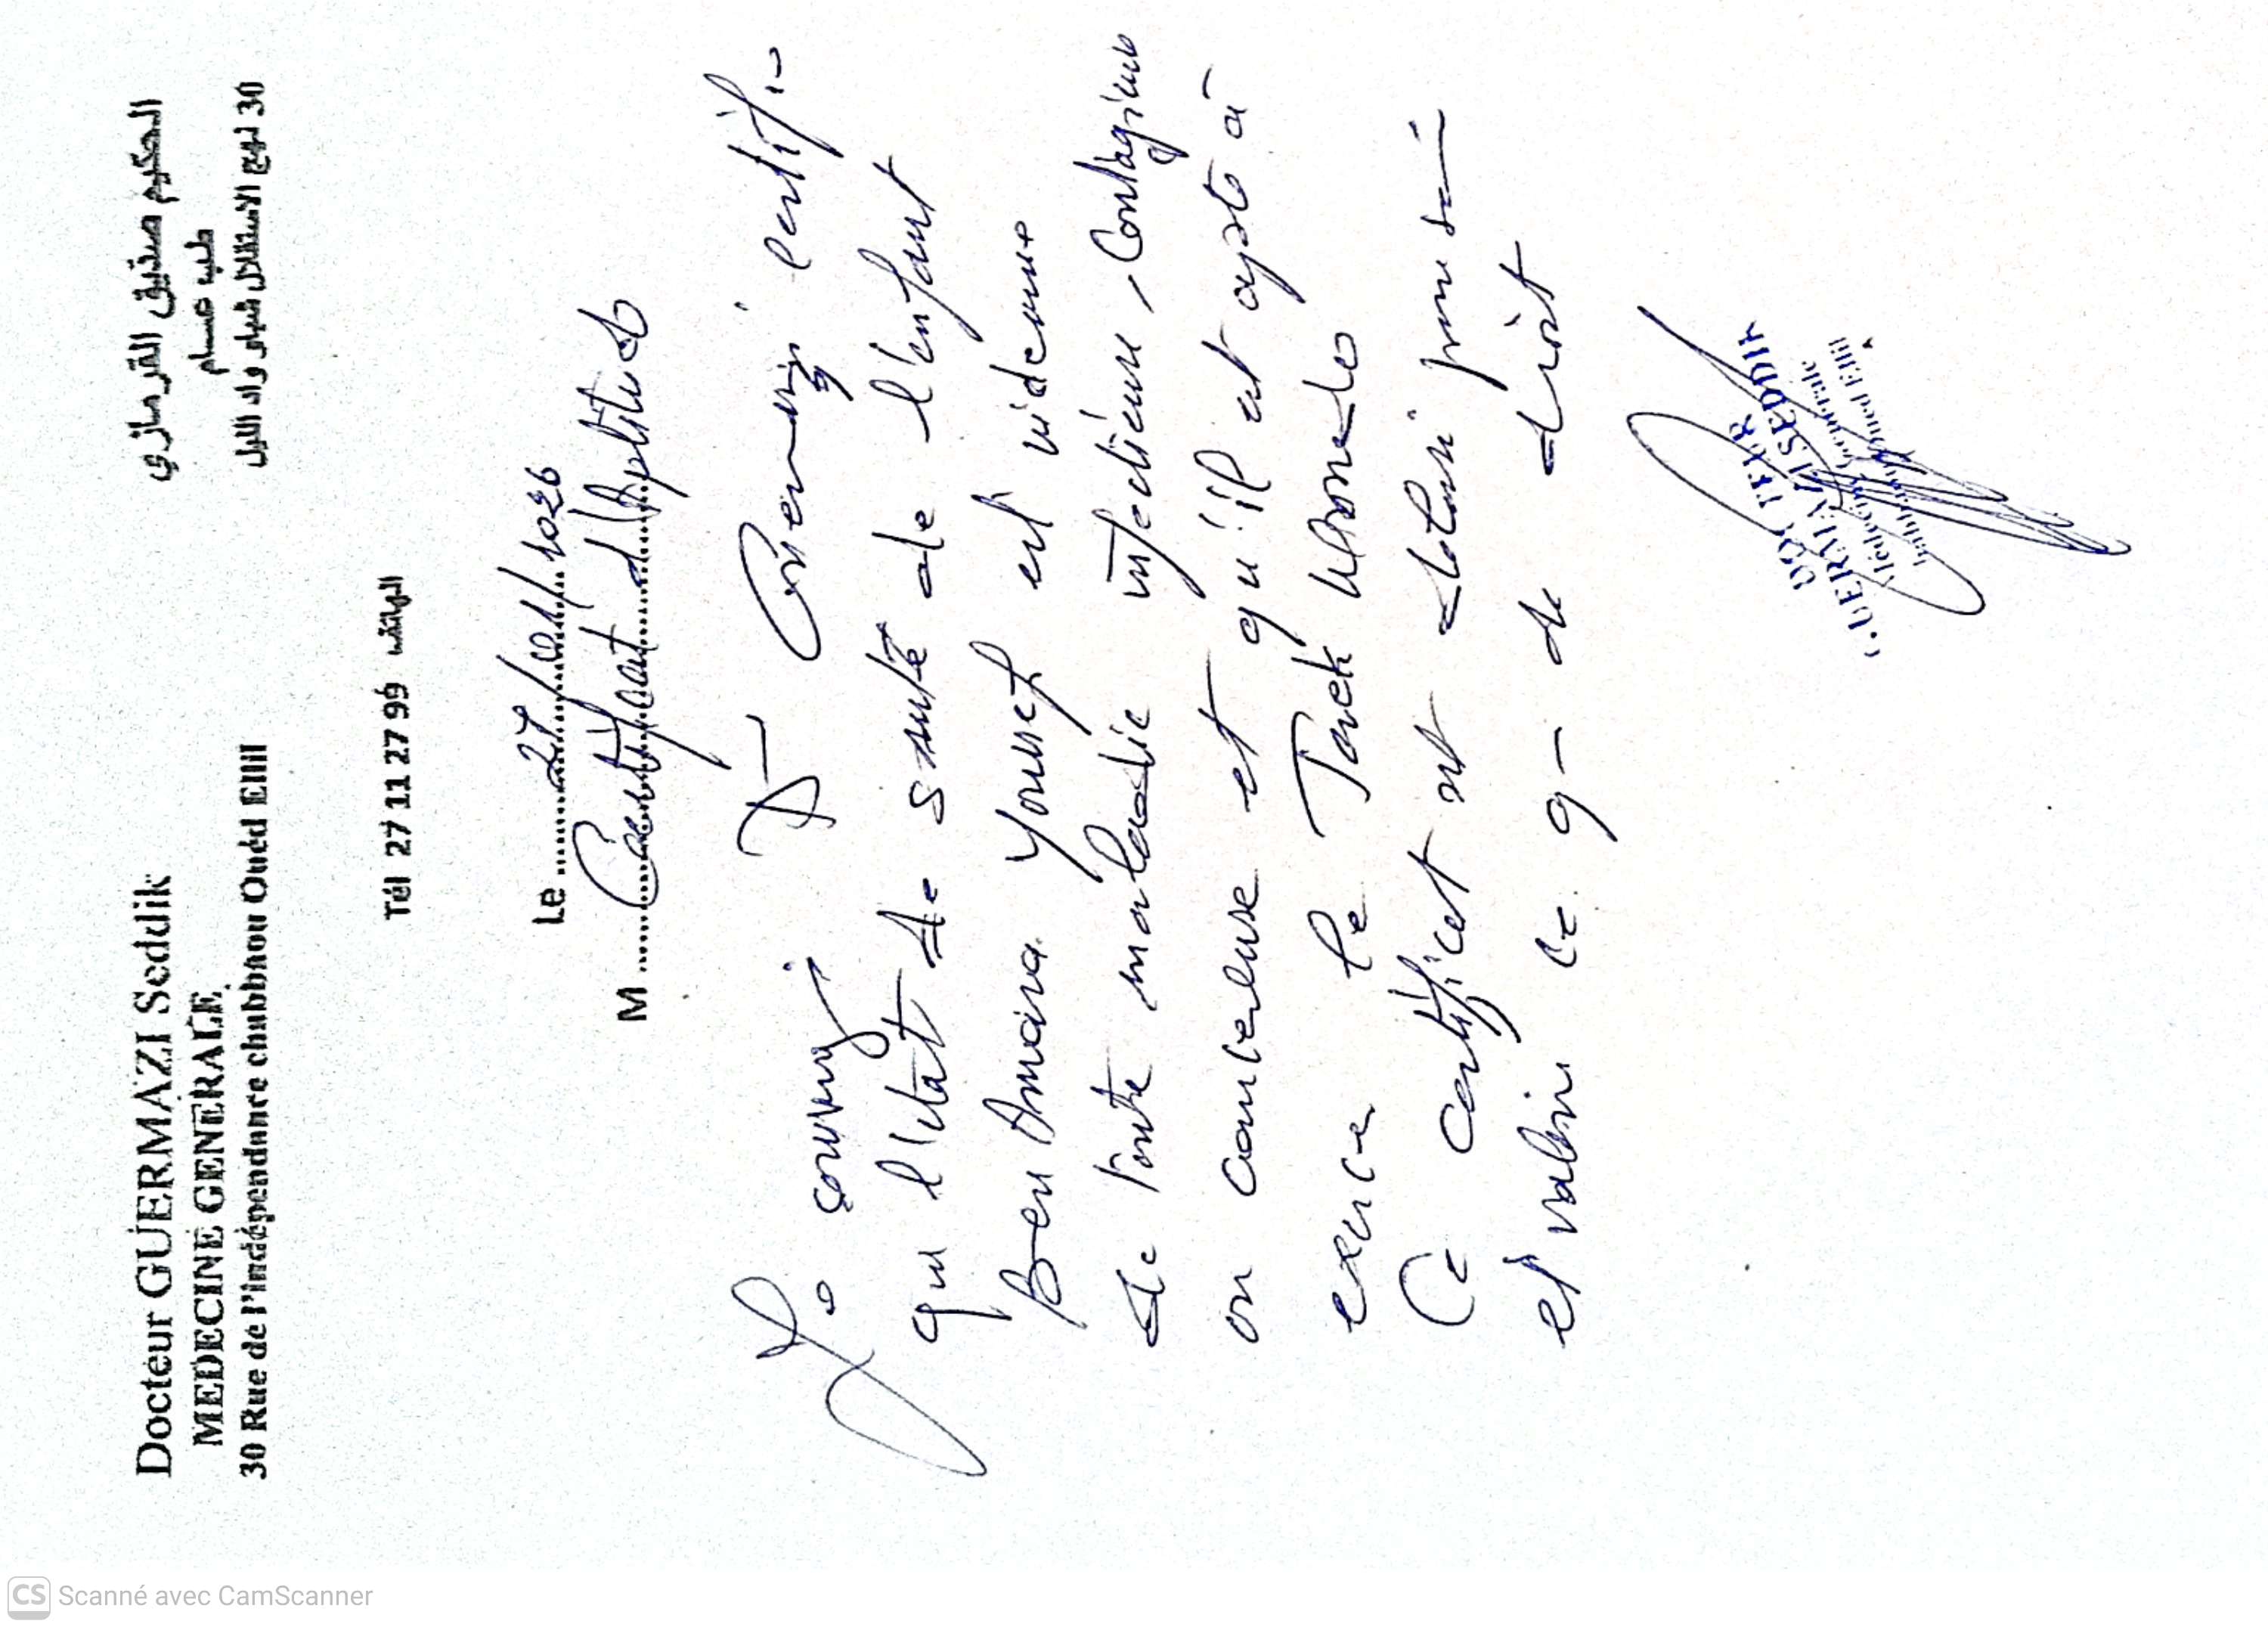 Docteur GUERMAZI Seddik
MEDECINE GENERALE
30 Rue de l'indépendance chabbaou Ouéd Ellil
الحكيم صديق القرمازي
طب عام
30 نهج الاستقلال شباو واد الليل
Tél 27 11 27 99 الهاتف
Le
M Certificat d'Aptitude
Je soussigné Dr certifie
que l'état de santé de l'enfant
Ben Amara Youssef est
de toute maladie infectieuse, contagieuse
ou cancereuse et qu'il est apte à
exercer le
Ce certificat est délivré pour servir
et valoir ce q de droit
DOCTEUR
GUERMAZI SEDDIK
Médecine Générale
Oued Ellil
CS Scanné avec CamScanner